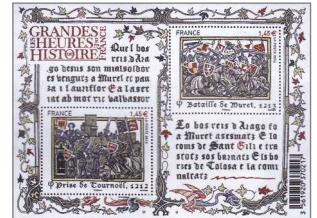 GRANDES
LES HEURES DE
HISTOIRE
DE FRANCE
Quel bos
reis d'Ara
go desus son
es vengutz a Muret el pan
za i l'auriflor E a laser
ab mot ric valbassor
FRANCE
1,45 €
Bataille de Muret, 1213
FRANCE
1,45 €
Prise de Tournoël, 1212
Lo bos reis d'Arago fo
a Muret asesmatz E lo
coms de Sant Gili e tres
totz sos barnatz E ls bor
zes de Tolosa e la comi
naltatz